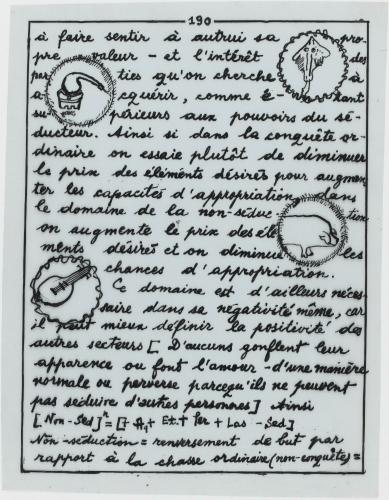 190
à faire sentir à autrui sa pro
pre valeur - et l'intérêt des
par ties qu'on cherche à
a cquérir, comme é- tant
su périeurs aux pouvoirs du sé-
ducteur. Ainsi si dans la conquête or-
dinaire on essaie plutôt de diminuer
le prix des éléments désirés pour augmen-
ter les capacités d'appropriation, dans
le domaine de la non-séduc- tion
on augmente le prix des élé
ments désirés et on diminue les
chances d'appropriation.
Ce domaine est d'ailleurs néces-
saire dans sa négativité même, car
il peut mieux définir la positivité des
autres secteurs [. D'aucuns gonflent leur
apparence ou font l'amour - d'une manière
normale ou perverse parcequ'ils ne peuvent
pas séduire d'autres personnes] Ainsi
[Non-Sed]ⁿ = [+ A₁+ Et.+ Per + Las - Sed]
Non-séduction = renversement de but par
rapport à la chasse ordinaire (non-conquête) =